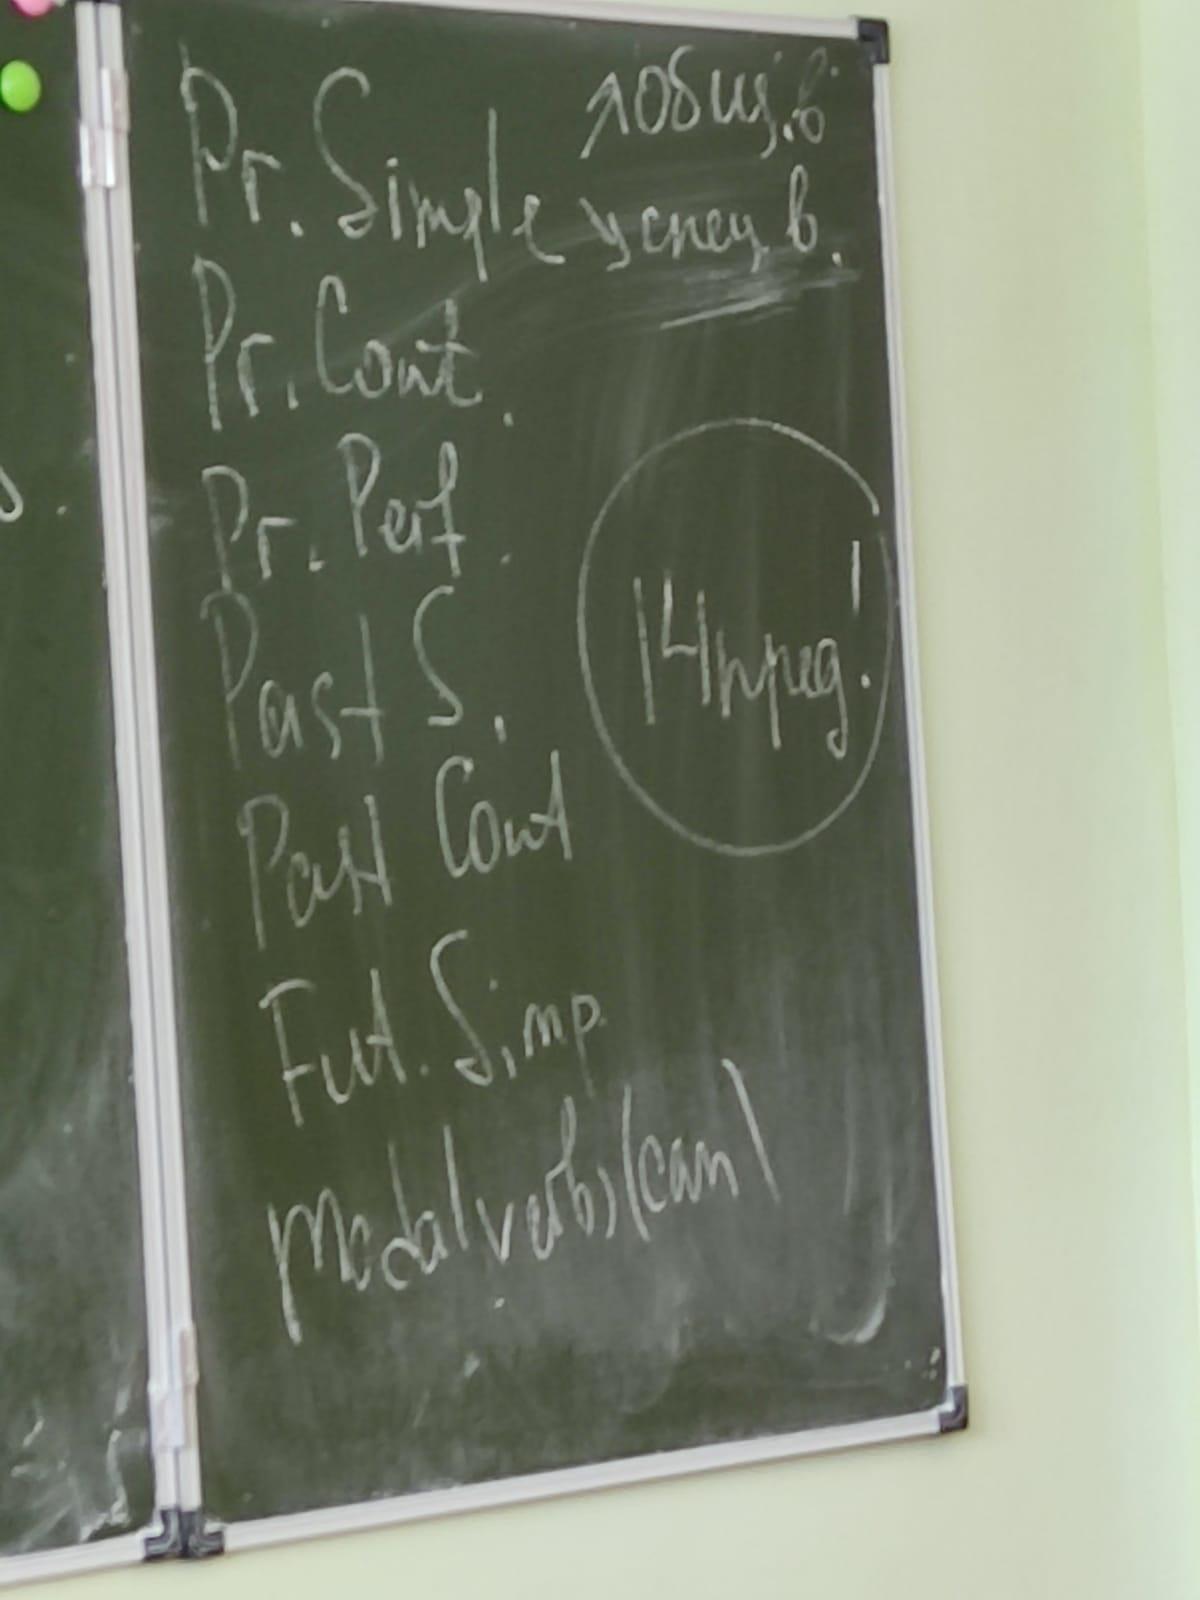 Pr. Simple ↗ общ. в
↘ спец. в.
Pr. Cont.
Pr. Perf.
Past S.
14 пред!
Past Cont
Fut. Simp.
Modal verbs (can)